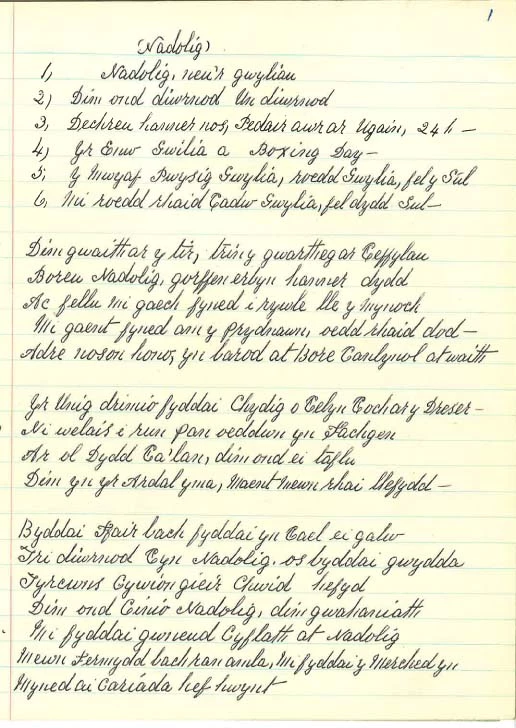 1
Nadolig,
1, Nadolig, neu'r gwyliau
2) Dim ond diwrnod Un diwrnod
3, Dechreu hanner nos, Pedair awr ar Ugain, 24 h —
4) Yr Enw Gwilia a Boxing Day —
5; Y Mwyaf Bwysig Gwylia, roedd Gwylia, fel y Sul
6, Mi roedd rhaid Cadw Gwylia, fel dydd Sul —
Dim gwaith ar y tir, trin y gwartheg ar Ceffylau
Boreu Nadolig, gorffen erbyn hanner dydd
Ac felly mi gaech fyned i rywle lle y Mynoch
Mi gaent fyned am y Prydnawn, oedd rhaid dod —
Adre noson hono, yn barod at Bore Canlynol at waith
Yr Unig drimio fyddai Chydig o Celyn Cochar y Dreser —
Ni welais i run pan oeddwn yn Fachgen
Ar ol Dydd Ca'lan, dim ond ei taflu
Dim yn yr Ardal yma, Maent Mewn rhai llefydd —
Byddai Ffair bach fyddai yn Cael ei galw
Tri diwrnod Cyn Nadolig. os byddai gwydda
Tyrcwns Cywion gieir Chwid hefyd
Dim ond Cinio Nadolig, dim gwahaniath
Mi fyddai gwneud Cyflath at Nadolig
Mewn Fermydd bach ran amla, Mi fyddai y Merched yn
Myned ai Cariada hef hwynt